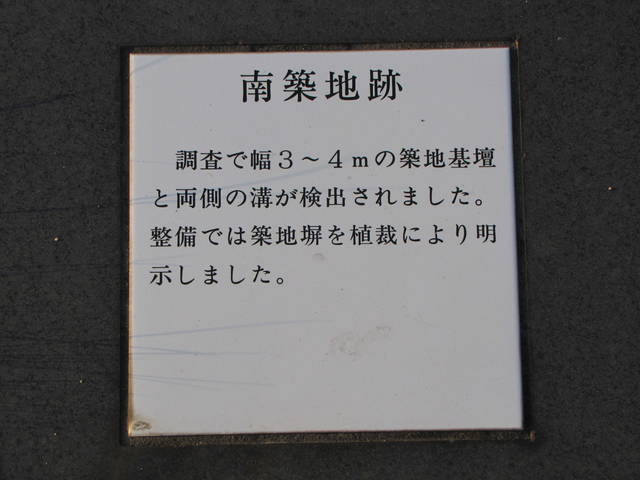 南築地跡
調査で幅３～４ｍの築地基壇
と両側の溝が検出されました。
整備では築地塀を植裁により明
示しました。